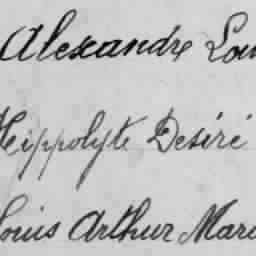 Alexandre Lou
Hippolyte Désiré
Louis Arthur Mari